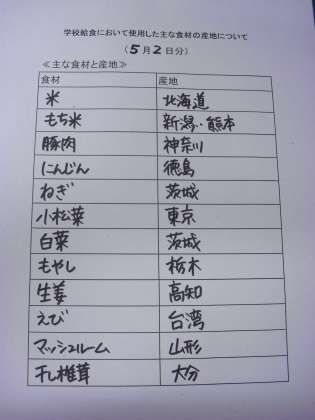 学校給食において使用した主な食材の産地について
（5月2日分）
≪主な食材と産地≫
食材 産地
米 北海道
もち米 新潟・熊本
豚肉 神奈川
にんじん 徳島
ねぎ 茨城
小松菜 東京
白菜 茨城
もやし 栃木
生姜 高知
えび 台湾
マッシュルーム 山形
干し椎茸 大分